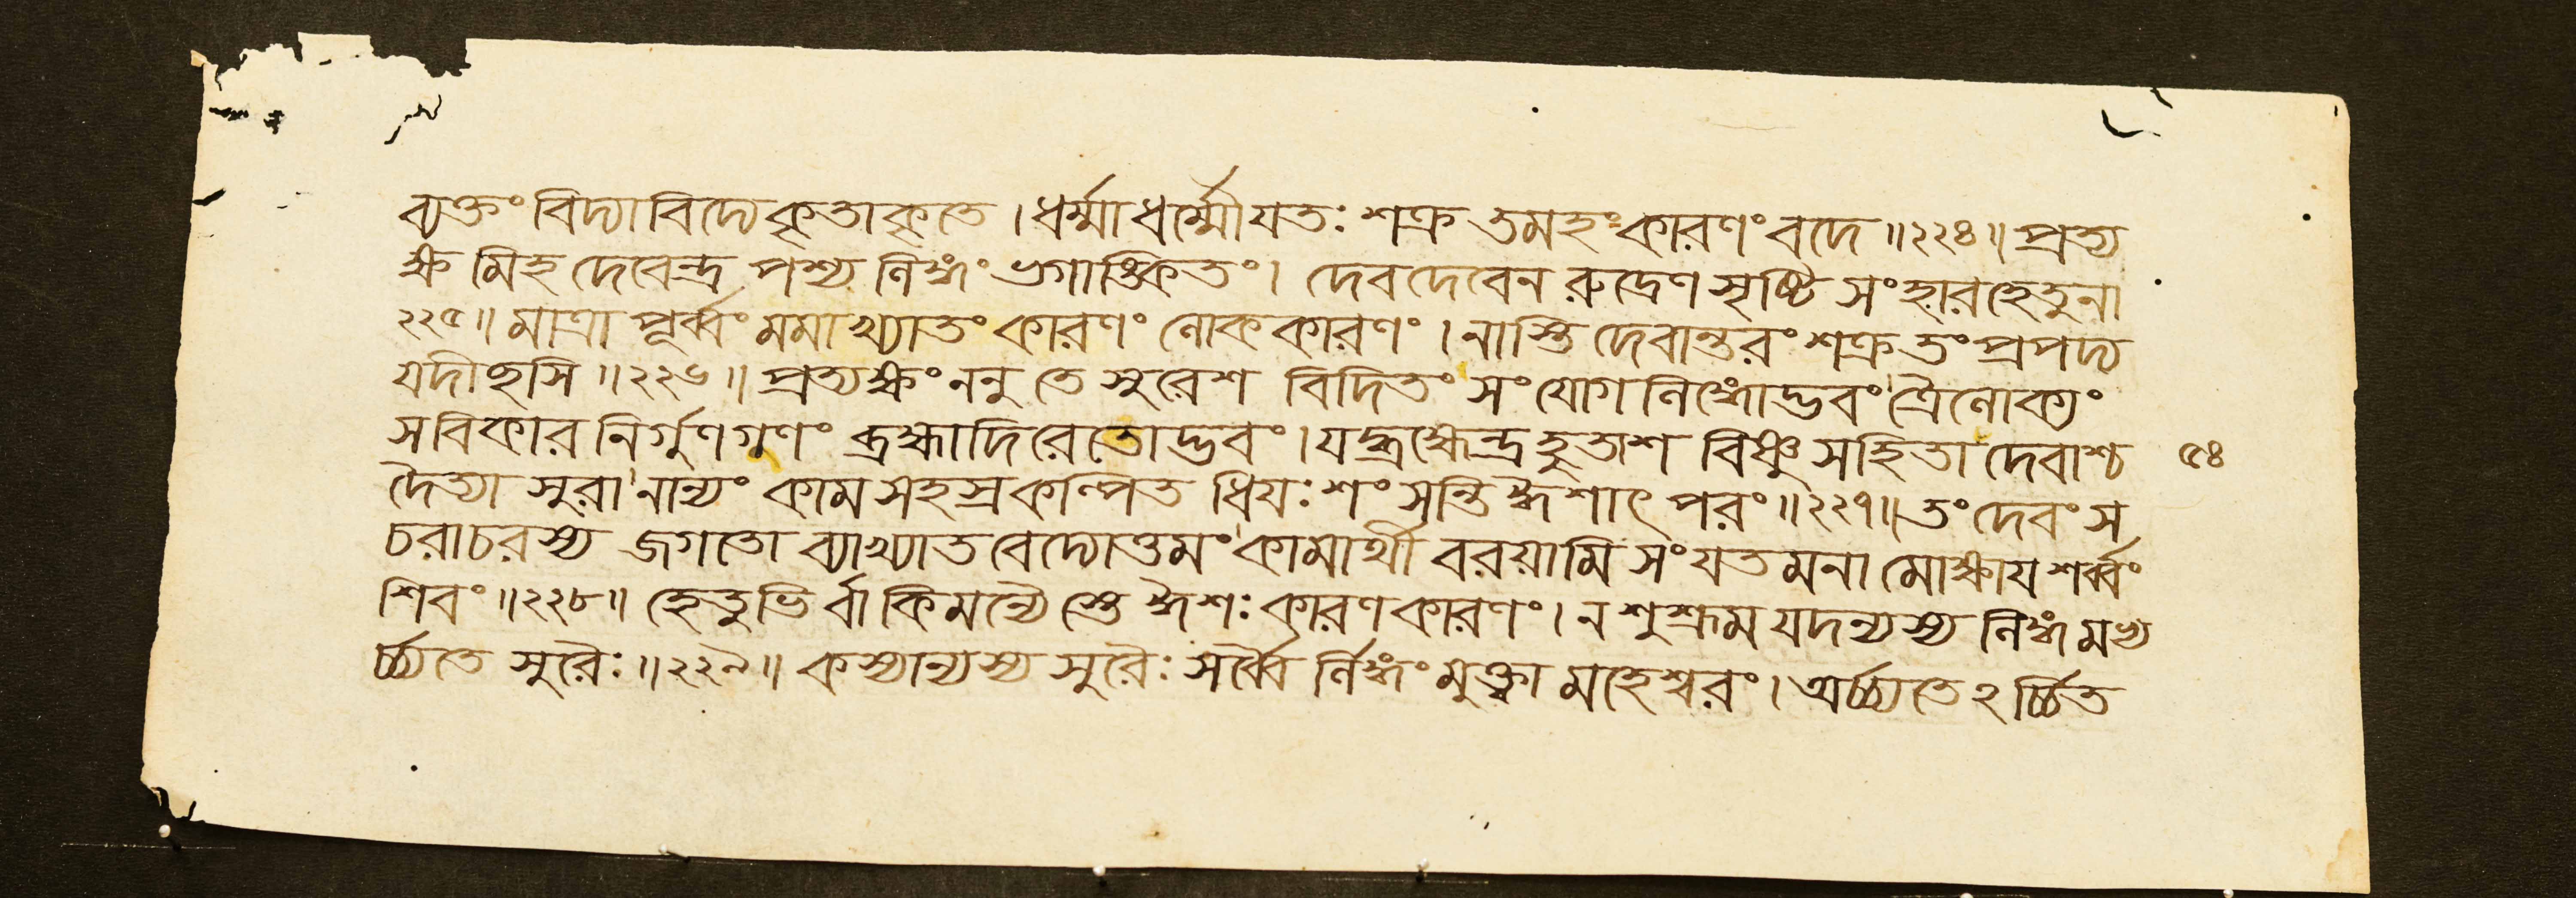 ব্যক্তং বিদ্যাবিদ্যে কৃতাকৃতে । ধর্ম্মাধর্ম্মৌ যতঃ শক্র তমহং কারণং বদে ॥২২৪॥ প্রত্য
ক্ষমিহ দেবেন্দ্র পশ্য লিঙ্গং ভগাঙ্কিতং। দেবদেবেন রুদ্রেণ সৃষ্টিসংহারহেতুনা
২২৫॥ মাত্রা পূর্ব্বং মমাখ্যাতং কারণং লোককারণং । নাস্তি দেবান্তরং শক্র তং প্রপদ্য
যদীচ্ছসি ॥২২৬॥ প্রত্যক্ষং ননু তে সুরেশ বিদিতং সংযোগলিঙ্গোদ্ভবং' ত্রৈলোক্যং
সবিকারনির্গুণগুণং ব্রহ্মাদিরেতোদ্ভবং । যদ্ব্রহ্মেন্দ্রহুতাশ বিষ্ণুসহিতা দেবাশ্চ ৫৪
দৈত্যাসুরা' নান্যং কামসহস্রকল্পিতধিযঃ শংসন্তি ঈশাৎ পরং ॥২২৭॥ তং দেবং স
চরাচরস্য জগতো ব্যাখ্যাতবেদ্যোত্তমং' কামার্থী বরয়ামি সংযতমনা মোক্ষায শর্ব্বং
শিবং ॥২২৮॥ হেতুভির্বা কিমন্যৈস্তে ঈশঃ কারণকারণং । ন শুশ্রুম যদন্যস্য লিঙ্গমভ্য
র্চ্চ্যতে সুরৈঃ ॥২২৯॥ কস্যান্যস্য সুরৈঃ সর্ব্বৈর্লিঙ্গং মুক্ত্বা মহেশ্বরং । অর্চ্চ্যতেঽর্চ্চিত